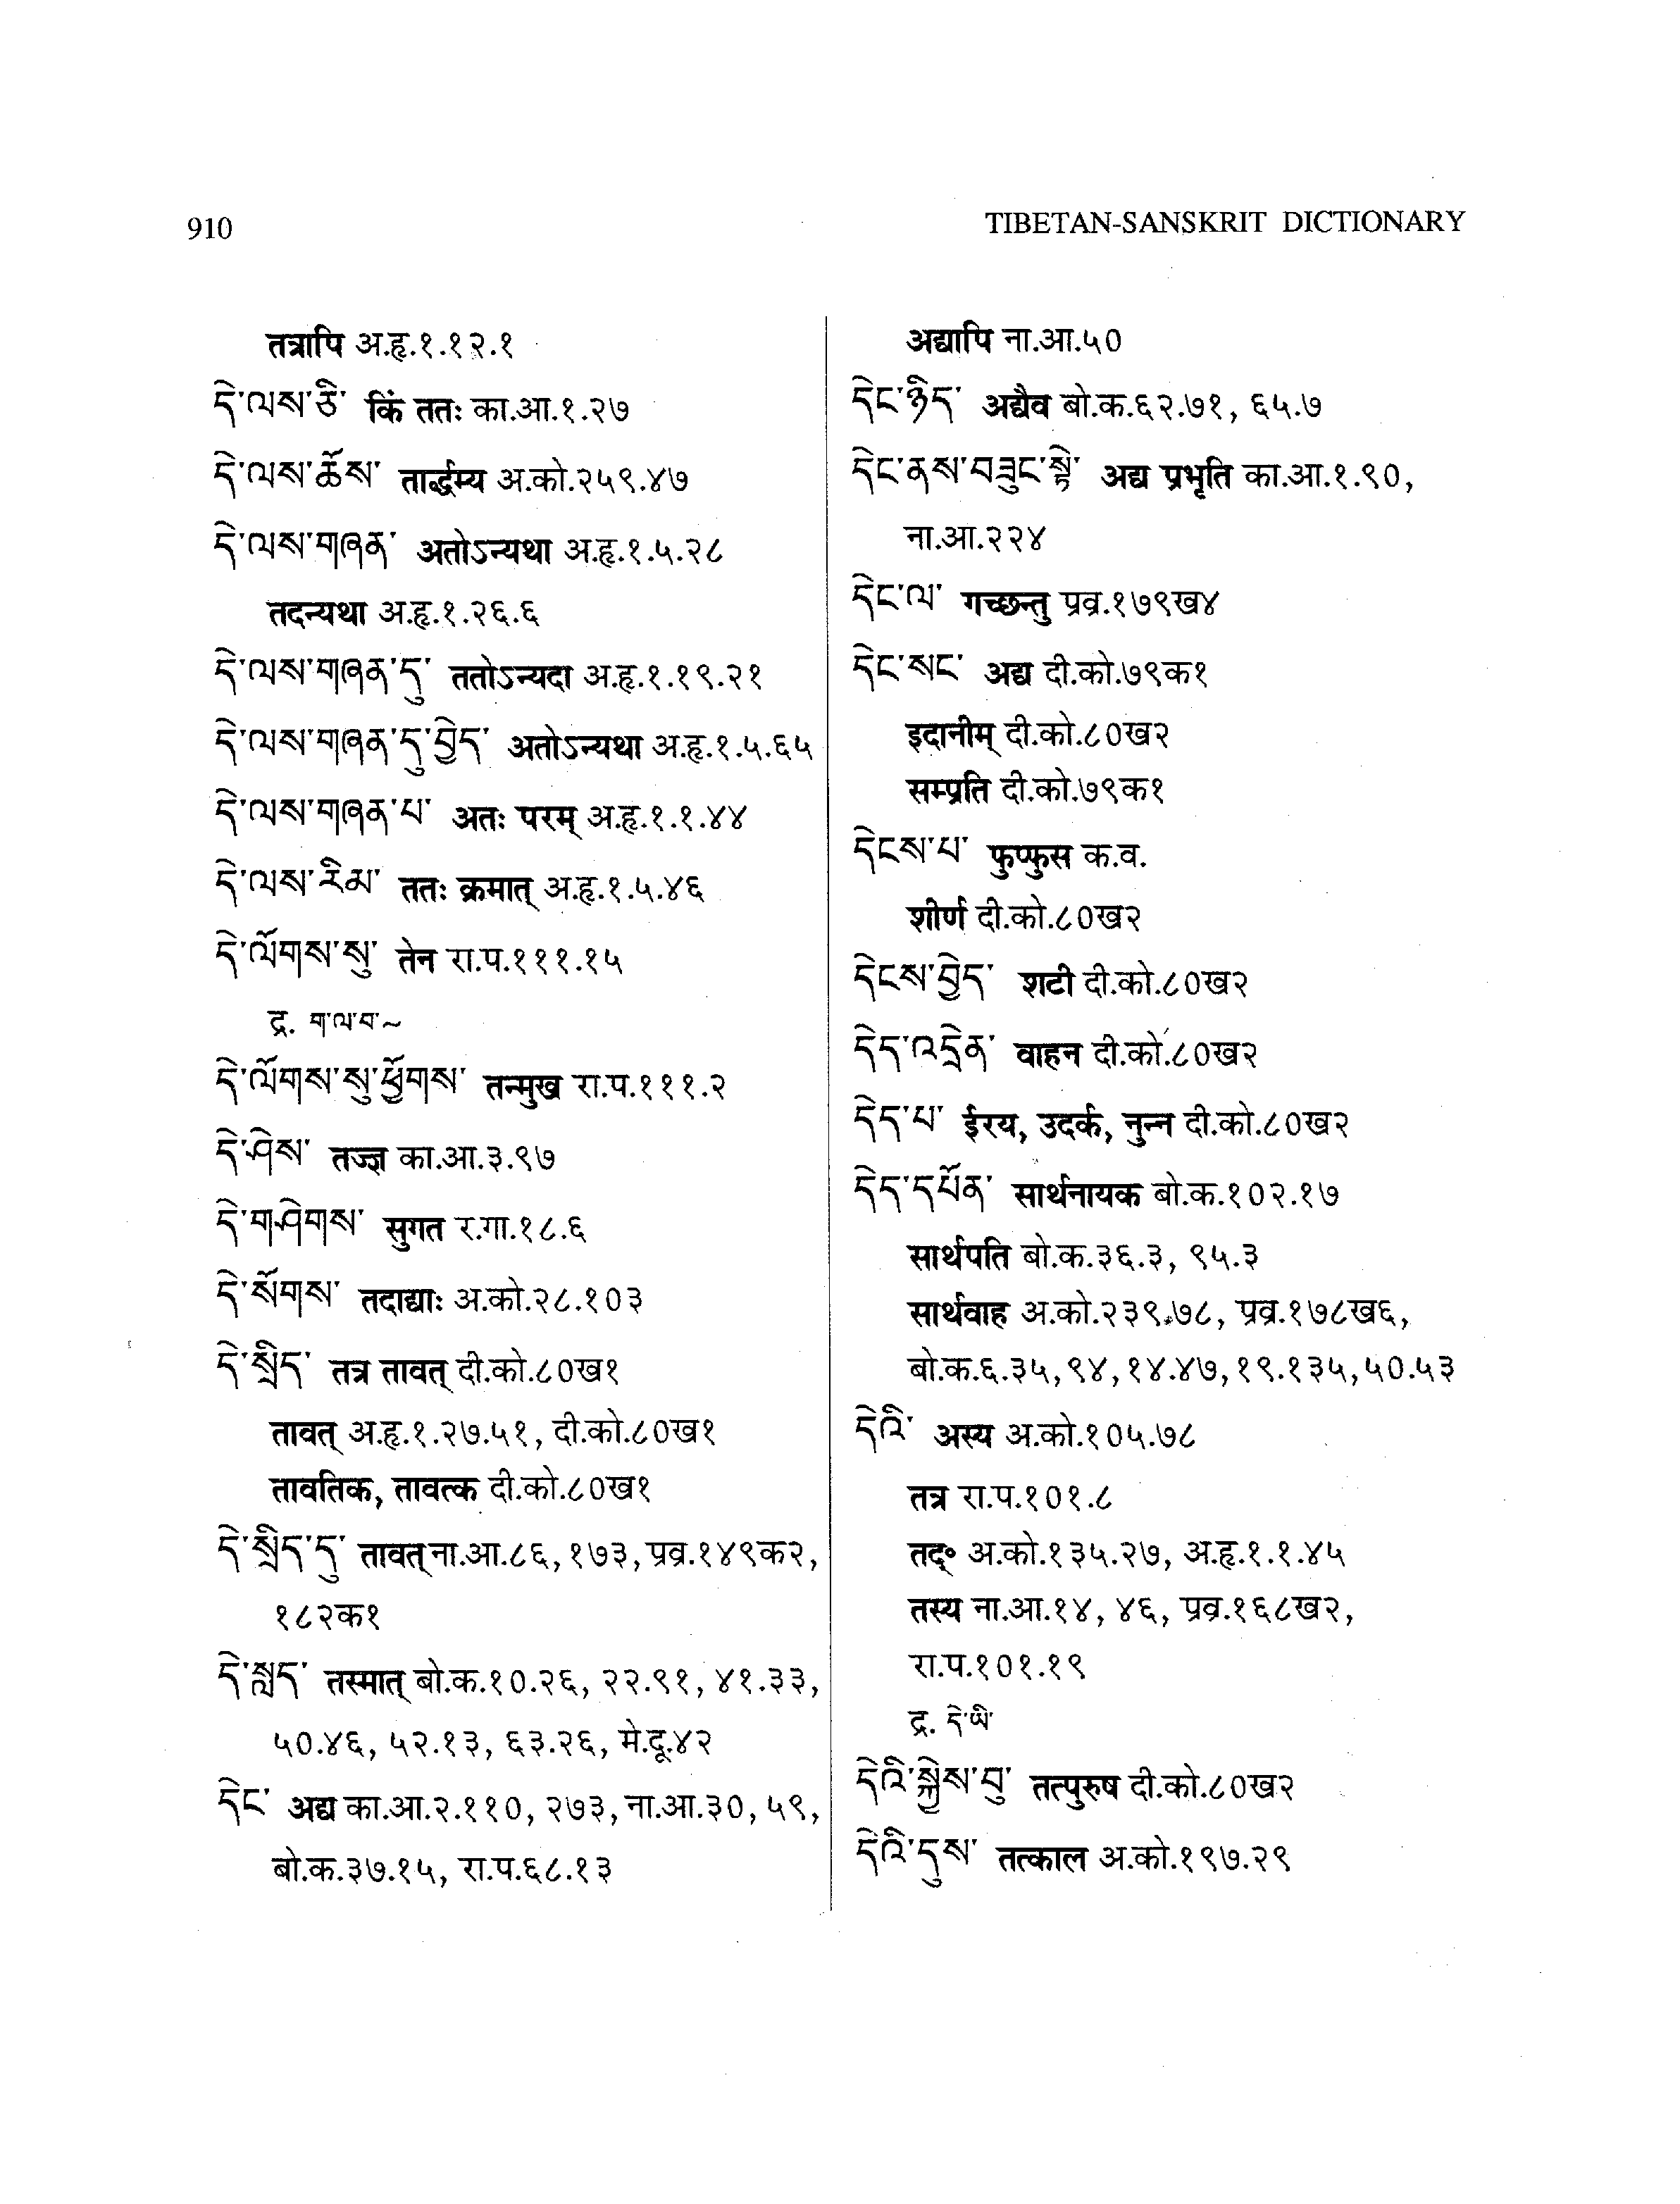 910
TIBETAN-SANSKRIT DICTIONARY
तत्रापि अ.हृ.१.१२.१
དེ་ལས་ཅི་ किं ततः का.आ.१.२७
དེ་ལས་ཆོས་ तार्द्धम्य अ.को.२५९.४७
དེ་ལས་གཞན་ अतोऽन्यथा अ.हृ.१.५.२८
तदन्यथा अ.हृ.१.२६.६
དེ་ལས་གཞན་དུ་ ततोऽन्यदा अ.हृ.१.१९.२१
དེ་ལས་གཞན་དུ་བྱེད་ अतोऽन्यथा अ.हृ.१.५.६५
དེ་ལས་གཞན་པ་ अतः परम् अ.हृ.१.१.४४
དེ་ལས་རིམ་ ततः क्रमात् अ.हृ.१.५.४६
དེ་ལོགས་སུ་ तेन रा.प.१११.१५
द्र. ག་ལ་བ་~
དེ་ལོགས་སུ་ཕྱོགས་ तन्मुख रा.प.१११.२
དེ་ཤེས་ तज्ज्ञ का.आ.३.९७
དེ་གཤེགས་ सुगत र.गा.१८.६
དེ་སོགས་ तदाद्याः अ.को.२८.१०३
དེ་སྲིད་ तत्र तावत् दी.को.८०ख१
तावत् अ.हृ.१.२७.५१, दी.को.८०ख१
तावतिक, तावत्क दी.को.८०ख१
དེ་སྲིད་དུ་ तावत् ना.आ.८६, १७३, प्रव्र.१४९क२,
१८२क१
དེ་སླད་ तस्मात् बो.क.१०.२६, २२.९१, ४१.३३,
५०.४६, ५२.१३, ६३.२६, मे.दू.४२
དེང་ अद्य का.आ.२.११०, २७३, ना.आ.३०, ५९,
बो.क.३७.१५, रा.प.६८.१३
अद्यापि ना.आ.५०
དེང་ཉིད་ अद्यैव बो.क.६२.७१, ६५.७
དེང་ནས་བཟུང་སྟེ་ अद्य प्रभृति का.आ.१.९०,
ना.आ.२२४
དེང་ལ་ गच्छन्तु प्रव्र.१७९ख४
དེང་སང་ अद्य दी.को.७९क१
इदानीम् दी.को.८०ख२
सम्प्रति दी.को.७९क१
དེངས་པ་ फुप्फुस क.व.
शीर्ण दी.को.८०ख२
དེངས་བྱེད་ शटी दी.को.८०ख२
དེད་འདྲེན་ वाहन दी.को.८०ख२
དེད་པ་ ईरय, उदर्क, नुन्न दी.को.८०ख२
དེད་དཔོན་ सार्थनायक बो.क.१०२.१७
सार्थपति बो.क.३६.३, ९५.३
सार्थवाह अ.को.२३९.७८, प्रव्र.१७८ख६,
बो.क.६.३५, ९४, १४.४७, १९.१३५, ५०.५३
དེའི་ अस्य अ.को.१०५.७८
तत्र रा.प.१०१.८
तद्॰ अ.को.१३५.२७, अ.हृ.१.१.४५
तस्य ना.आ.१४, ४६, प्रव्र.१६८ख२,
रा.प.१०१.१९
द्र. དེ་ཡི་
དེའི་སྐྱེས་བུ་ तत्पुरुष दी.को.८०ख२
དེའི་དུས་ तत्काल अ.को.१९७.२९